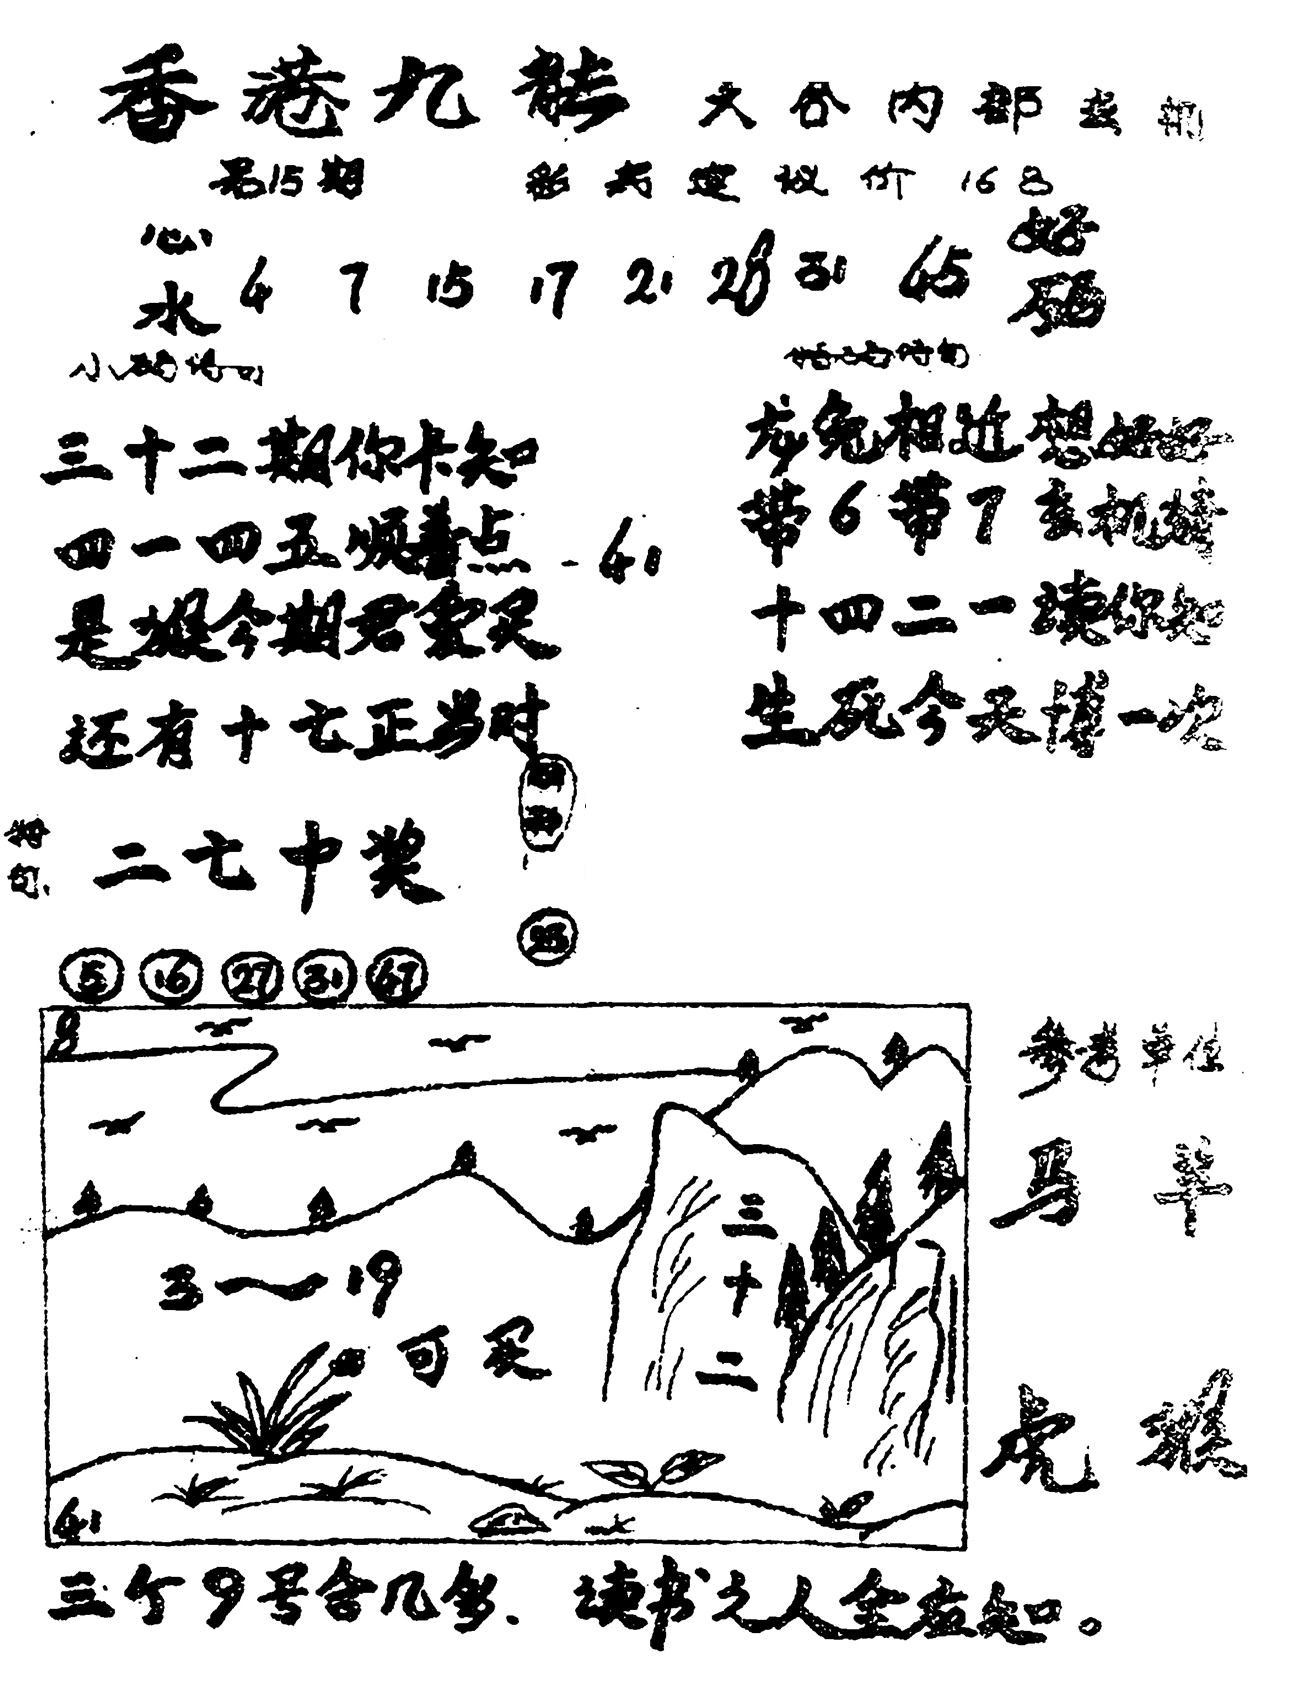 香港九龙 大谷内部玄机
第15期 彩书建议价 168
心水 4 7 15 17 21 28 31 45 好码
小码诗句
特码诗句
三十二期你卡知
四一四五顺着点 - 41
是猴今期君爱买
还有十七正当时
龙兔相近想好好
带6带7玄机猜
十四二一读你知
生死今天博一次
特句: 二七中奖
23
5 16 27 31 47
8
三十二
3—19
可买
41
参考单位
马 羊
虎 猴
三个9号含几多. 读书之人全应知。